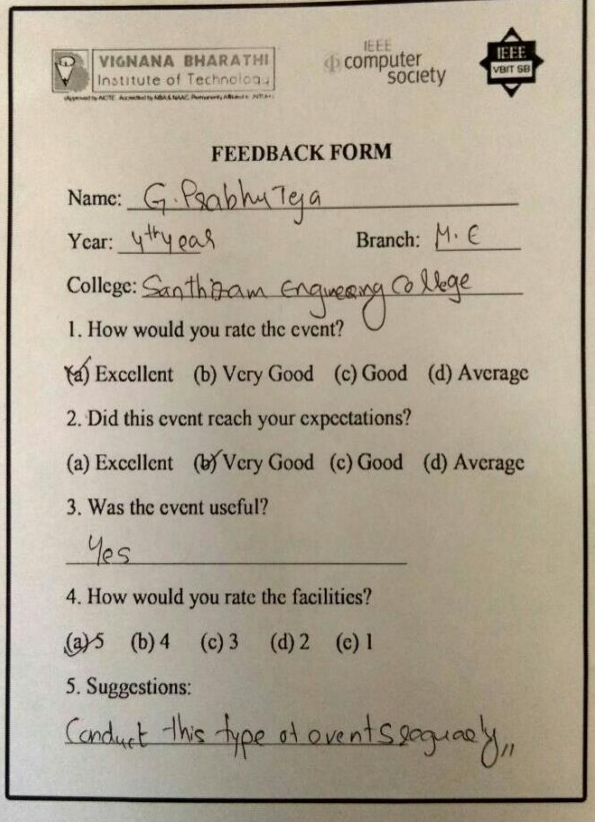 VIGNANA BHARATHI
Institute of Technology
IEEE
computer
society
IEEE
VBIT SB
FEEDBACK FORM
Name: G. Prabhu Teja
Year: 4th year Branch: M.E
College: Santhiram Engineering College
1. How would you rate the event?
(a) Excellent (b) Very Good (c) Good (d) Average
2. Did this event reach your expectations?
(a) Excellent (b) Very Good (c) Good (d) Average
3. Was the event useful?
Yes
4. How would you rate the facilities?
(a) 5 (b) 4 (c) 3 (d) 2 (e) 1
5. Suggestions:
Conduct this type of events